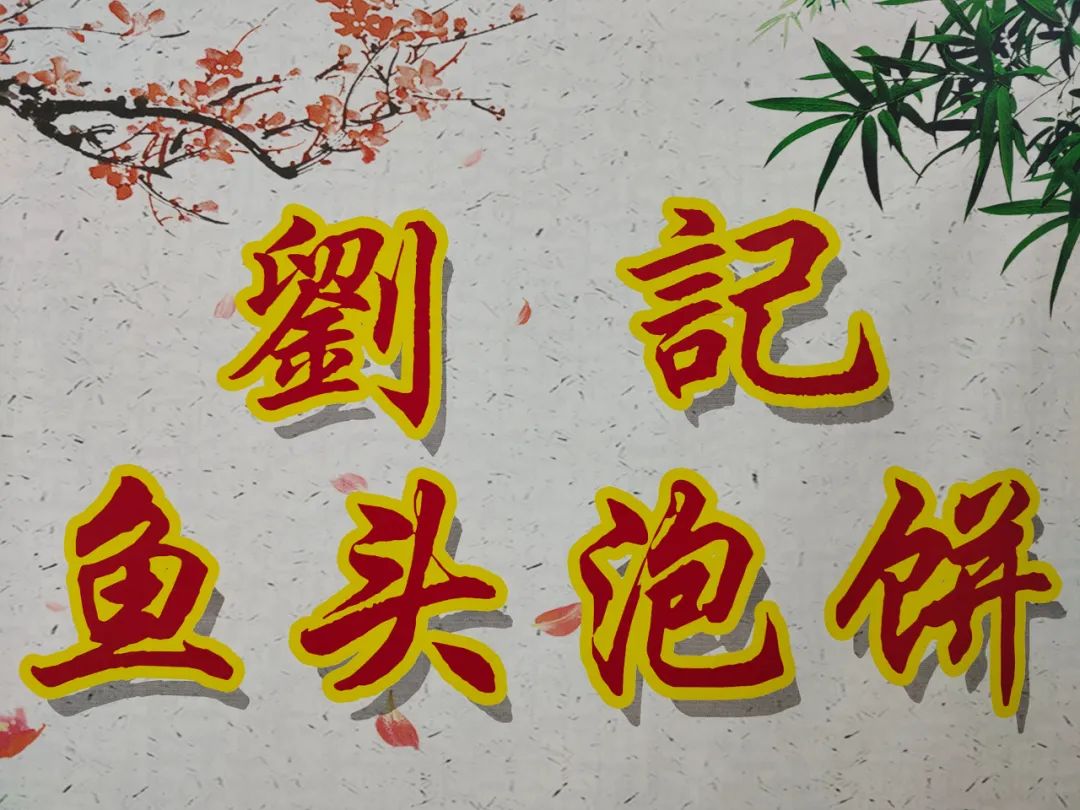 劉記
鱼头泡饼